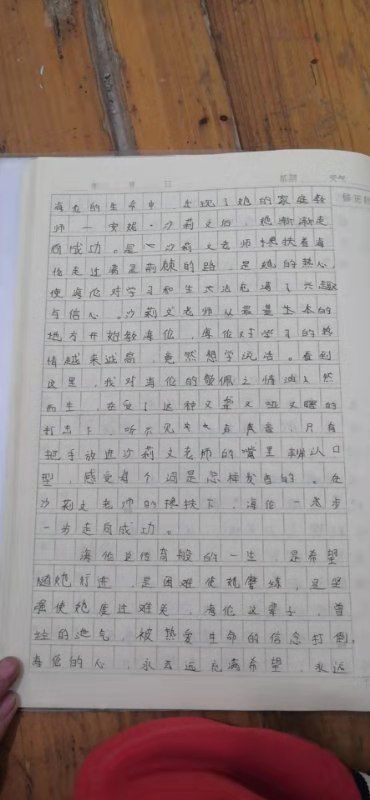 年 月 日 星期 天气
海伦的生命中，出现了她的家庭教
师一安妮·沙莉文后，她渐渐走
向成功。是沙莉文老师搀扶着海
伦走过满是荆棘的路，是她的热心
使海伦对学习和生活充满了兴趣
与信心。沙莉文老师从最基本的
地方开始教海伦，海伦对学习的热
情越来越高，竟然想学说话。看到
这里，我对海伦的敬佩之情油然
而生，在受了这种又聋又哑又瞎的
打击下，听不见，只有
把手放进沙莉文老师的嘴里辨认口
型，感受每个词是怎样发音的。在
沙莉文老师的搀扶下，海伦一步步
一步走向成功。
海伦是传奇般的一生，是希望
随她灯进，是困难使她磨练，是坚
强使她度过难关，海伦这辈子，曾
经的泄气，被热爱生命的信念打倒，
海伦的心，永远充满希望，永远